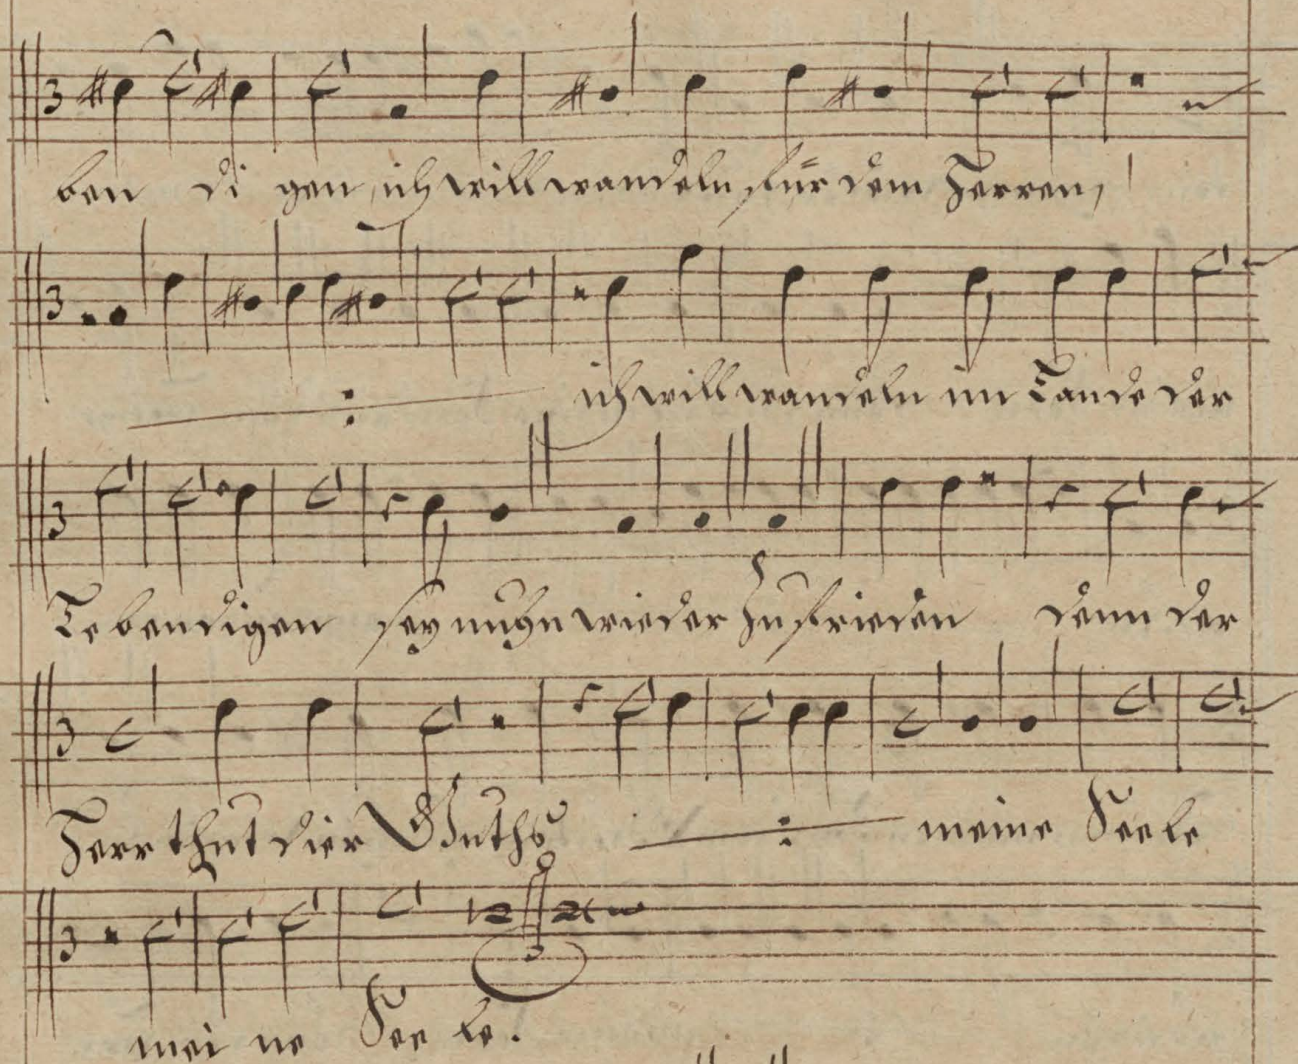 ben di gen, ich will wandeln für dem Herren,
ich will wandeln im Lande der
Lebendigen sey nuhn wieder zufrieden denn der
Herr thut dier Guths meine Seele
mei ne See le.